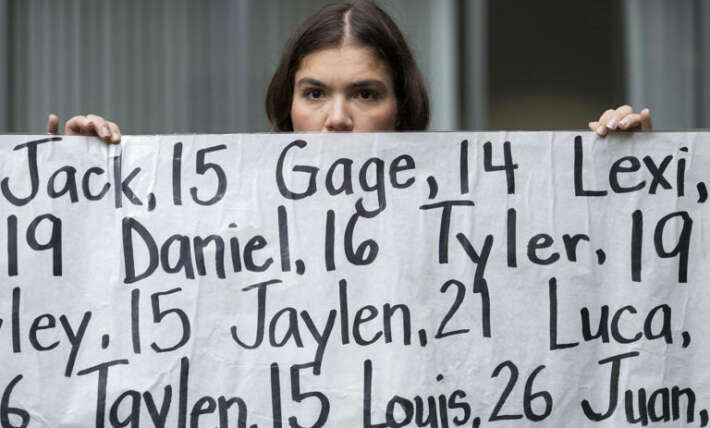 Jack, 15 Gage, 14 Lexi,
19 Daniel, 16 Tyler, 19
ley, 15 Jaylen, 21 Luca,
6 Taylen, 15 Louis, 26 Juan,